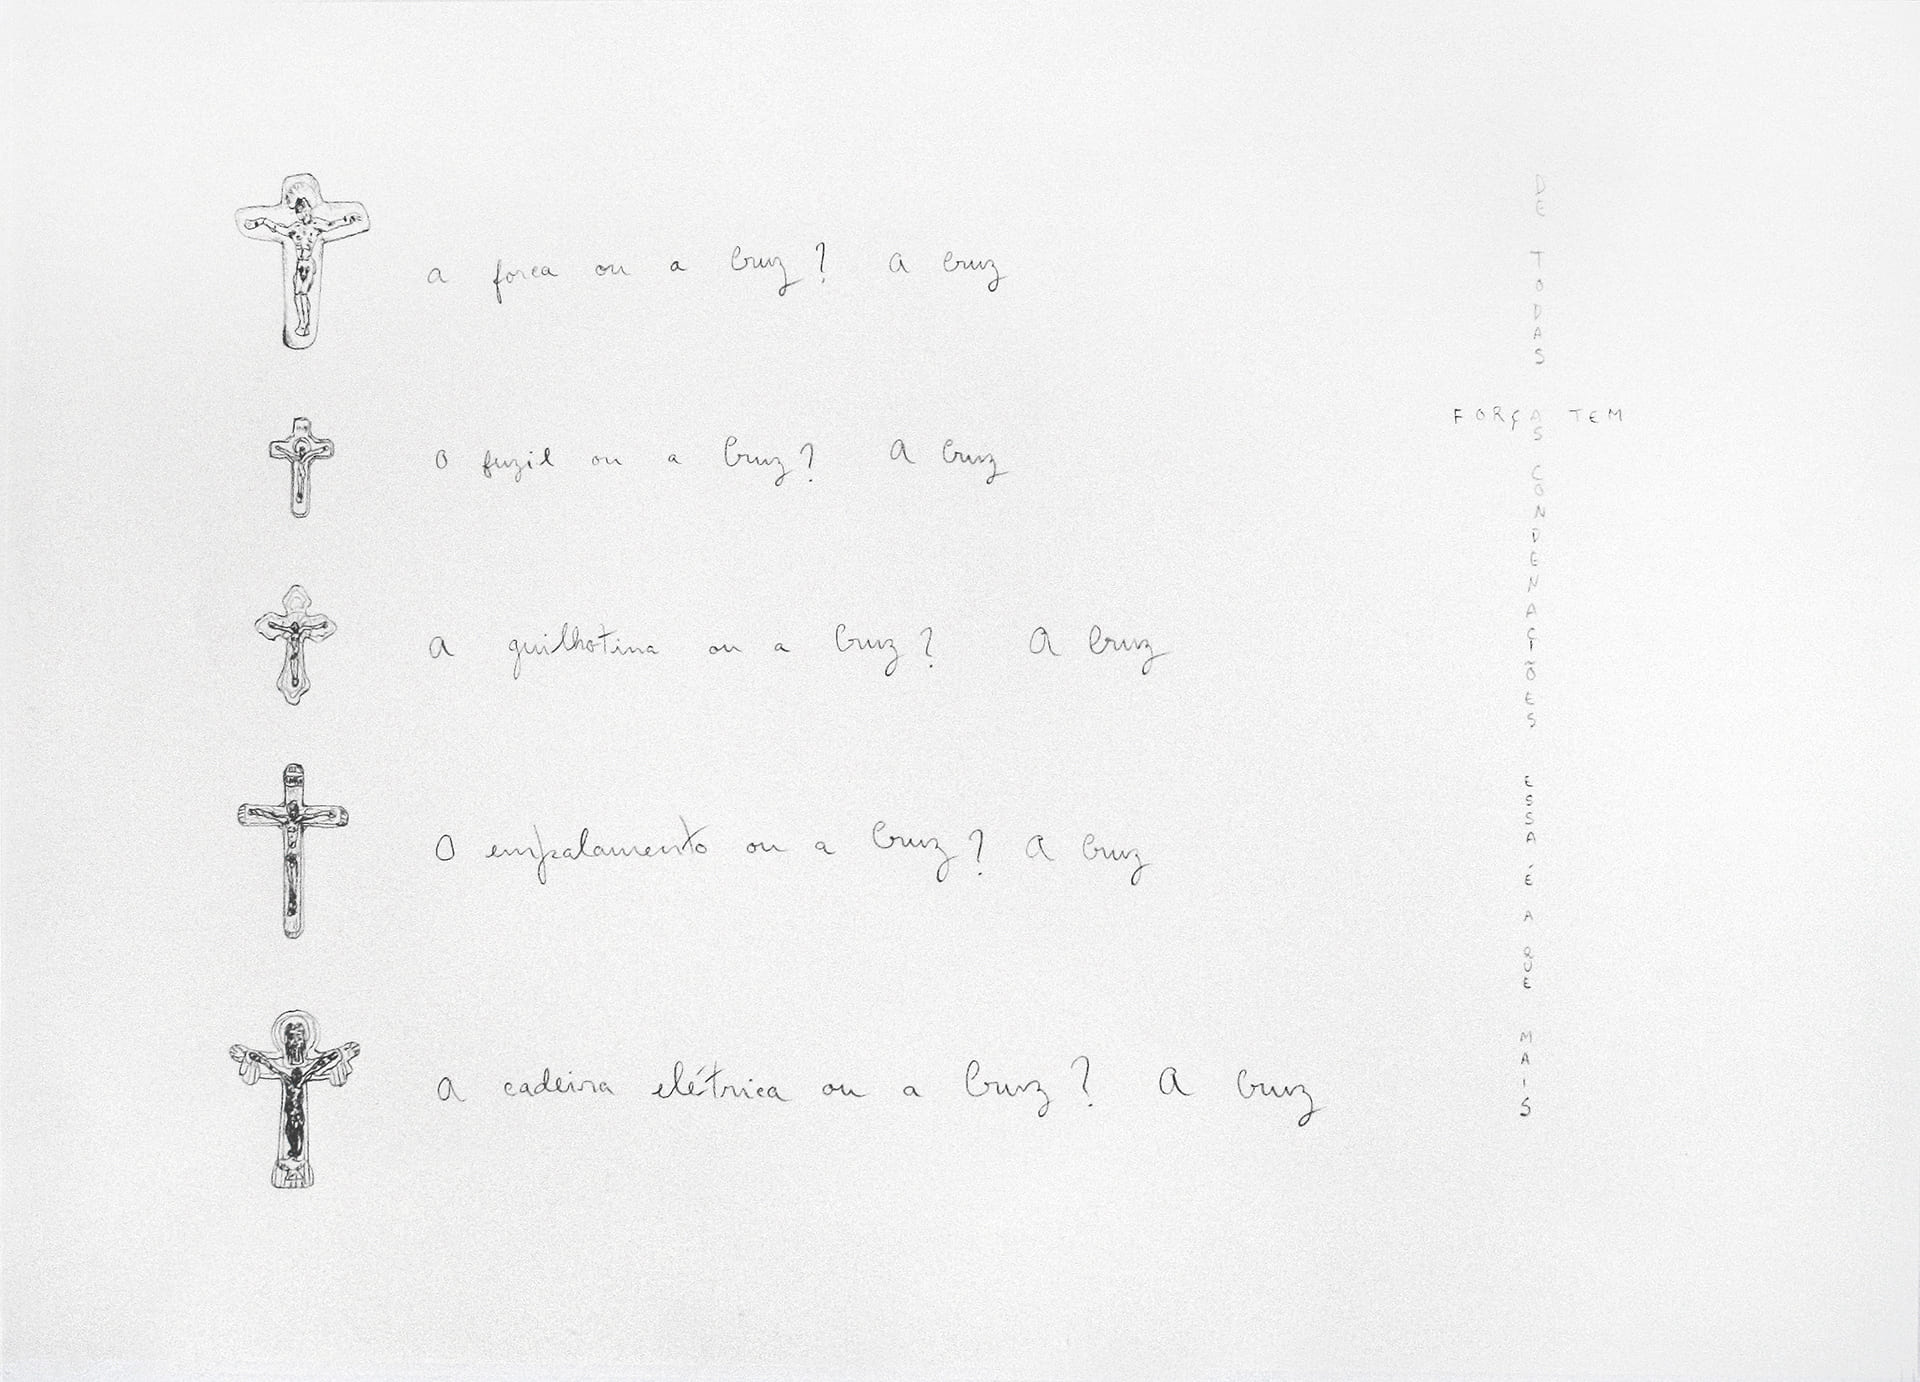 a forca ou a Cruz? A Cruz
O fuzil ou a Cruz? A Cruz
A guilhotina ou a Cruz? A Cruz
O empalamento ou a Cruz? A Cruz
A cadeira elétrica ou a Cruz? A Cruz
DE TODAS AS CONDENAÇÕES ESSA É A QUE MAIS
FORÇA TEM